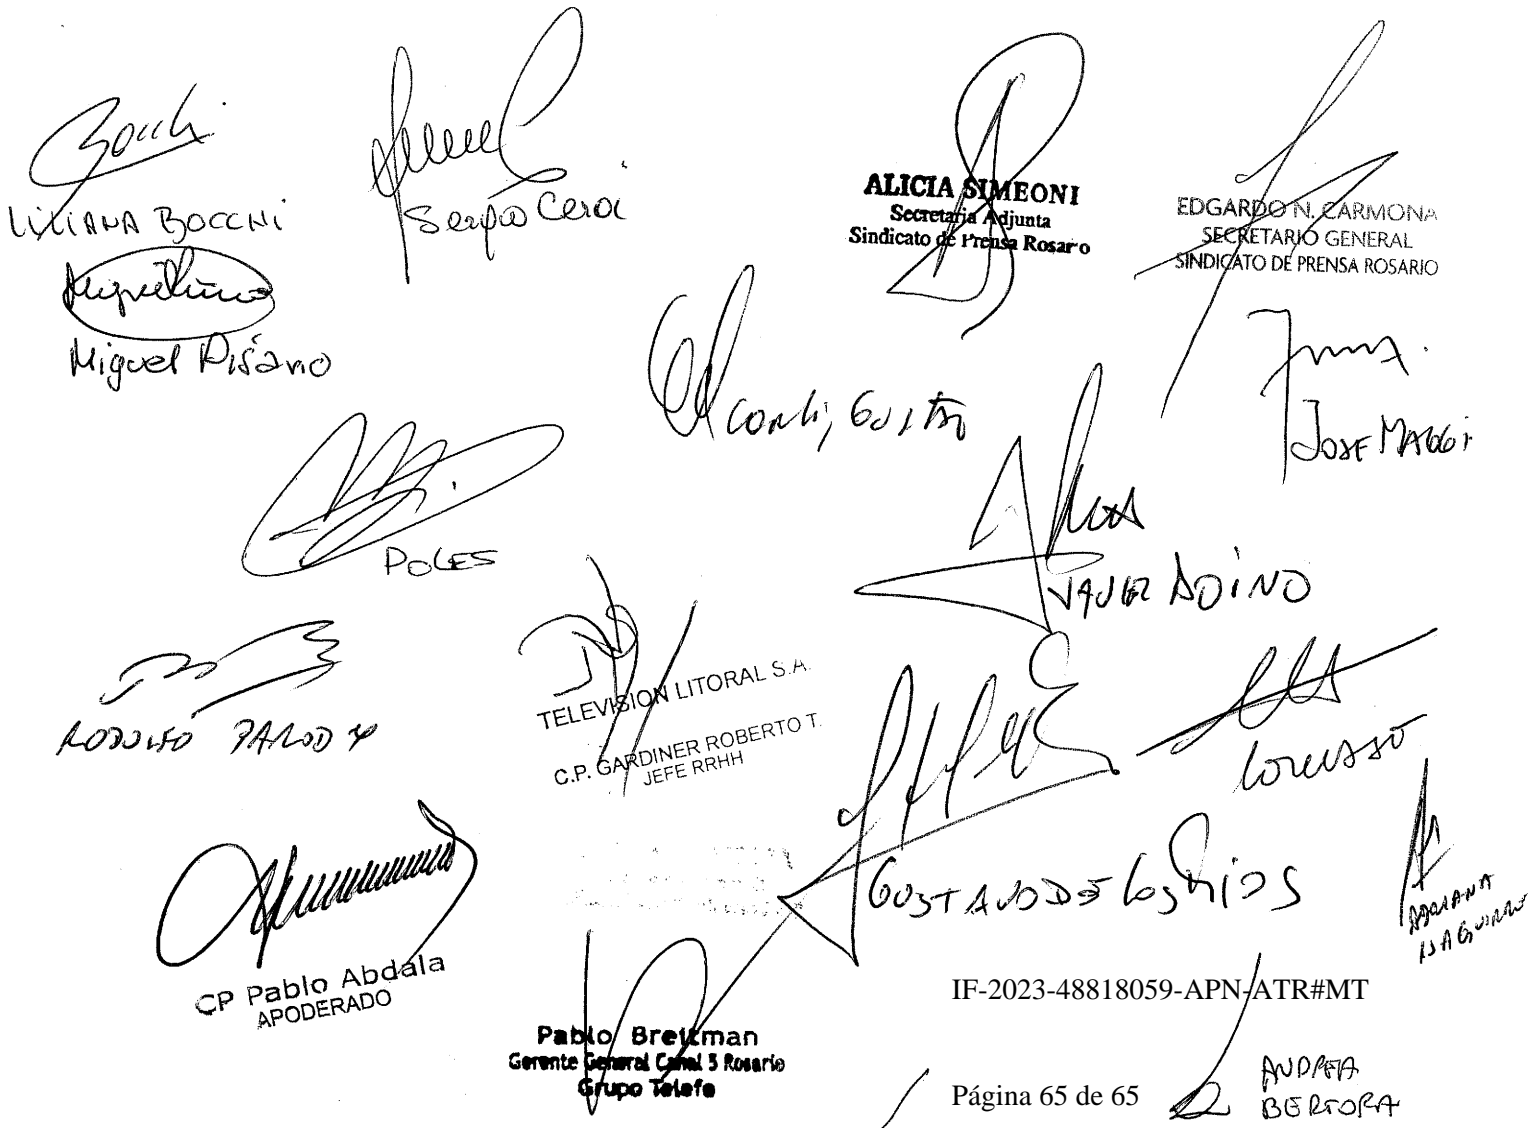 LILIANA BOCCHI
Sergio Ceroi
ALICIA SIMEONI
Secretaria Adjunta
Sindicato de Prensa Rosario
EDGARDO N. CARMONA
SECRETARIO GENERAL
SINDICATO DE PRENSA ROSARIO
Miguel Pisano
Conti, Gustavo
JOSE MAGGI
POLES
JAVIER ADINO
RODOLFO PARODY
TELEVISION LITORAL S.A.
C.P. GARDINER ROBERTO T.
JEFE RRHH
GUSTAVO DE LOS RIOS
ADRIANA
CP Pablo Abdala
APODERADO
IF-2023-48818059-APN-ATR#MT
Pablo Breitman
Gerente General Canal 5 Rosario
Grupo Telefe
Página 65 de 65
ANDREA
BERTORA